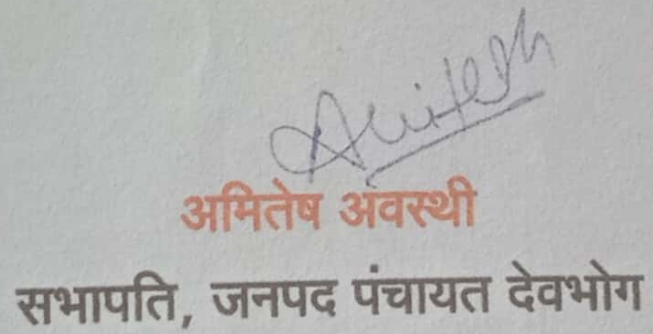 Amitesh
अमितेष अवस्थी
सभापति, जनपद पंचायत देवभोग